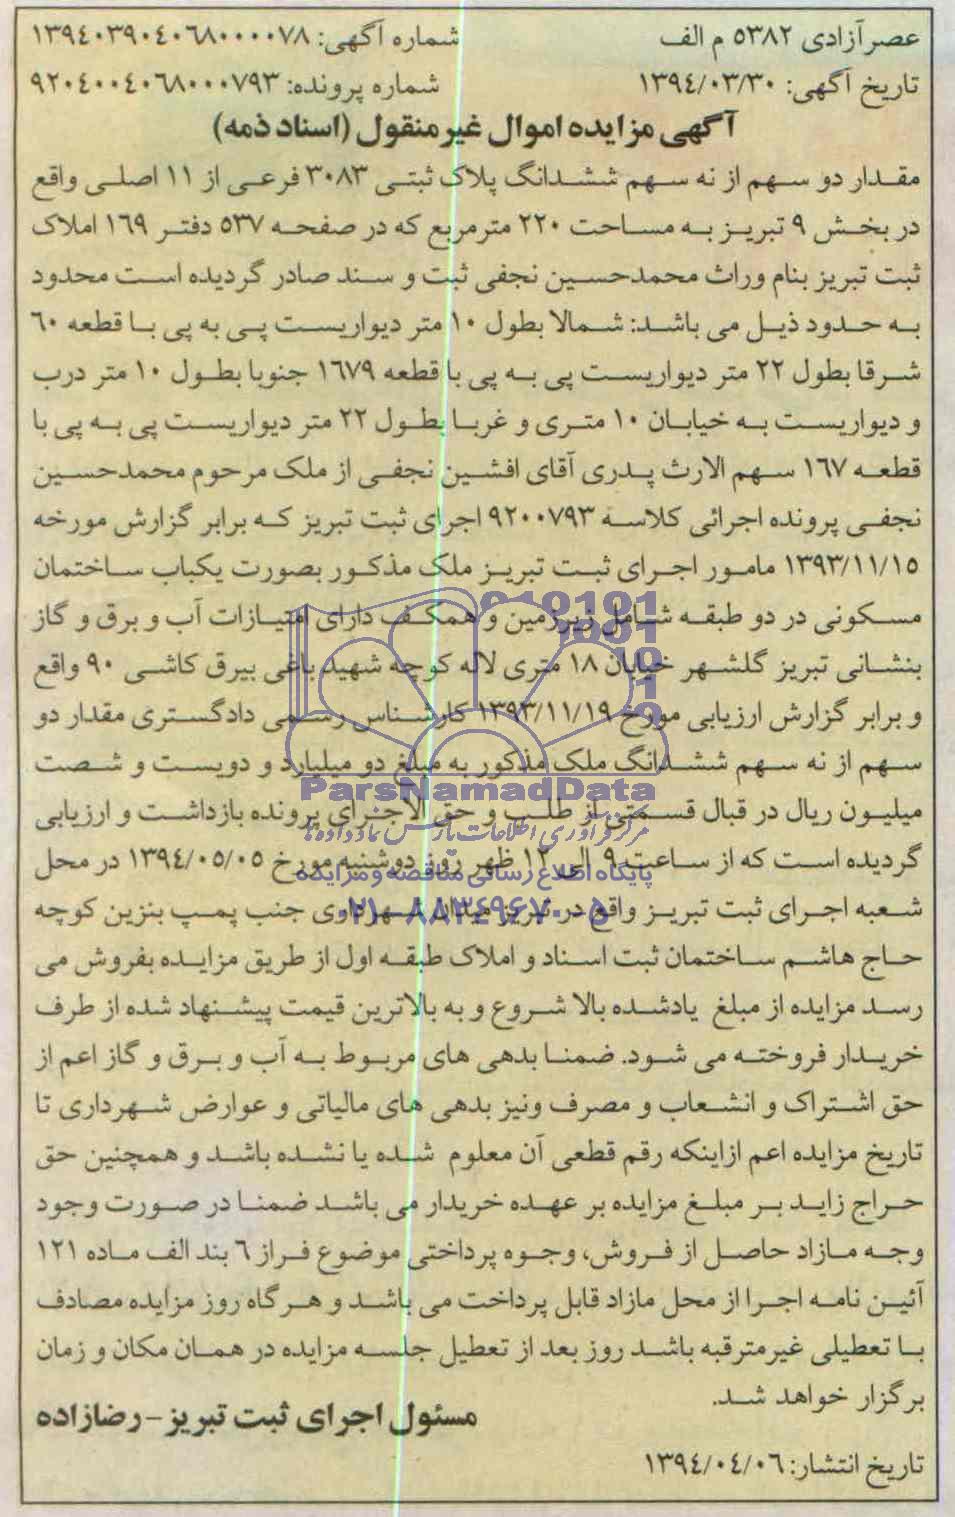 عصرآزادی ٥٣٨٢ م الف
شماره آگهی: ١٣٩٤٠٣٩٠٤٠٦٨٠٠٠٠٧٨
تاریخ آگهی: ١٣٩٤/٠٣/٣٠
شماره پرونده: ٩٢٠٤٠٠٤٠٦٨٠٠٠٧٩٣
آگهی مزایده اموال غیرمنقول (اسناد ذمه)
مقدار دو سهم از نه سهم ششدانگ پلاک ثبتی ٣٠٨٣ فرعی از ١١ اصلی واقع
در بخش ٩ تبریز به مساحت ٢٢٠ مترمربع که در صفحه ٥٣٧ دفتر ١٦٩ املاک
ثبت تبریز بنام وراث محمدحسین نجفی ثبت و سند صادر گردیده است محدود
به حدود ذیل می باشد: شمالا بطول ١٠ متر دیواریست پی به پی با قطعه ٦٠
شرقا بطول ٢٢ متر دیواریست پی به پی با قطعه ١٦٧٩ جنوبا بطول ١٠ متر درب
و دیواریست به خیابان ١٠ متری و غربا بطول ٢٢ متر دیواریست پی به پی با
قطعه ١٦٧ سهم الارث پدری آقای افشین نجفی از ملک مرحوم محمدحسین
نجفی پرونده اجرائی کلاسه ٩٢٠٠٧٩٣ اجرای ثبت تبریز که برابر گزارش مورخه
١٣٩٣/١١/١٥ مامور اجرای ثبت تبریز ملک مذکور بصورت یکباب ساختمان
مسکونی در دو طبقه شامل زیرزمین و همکف دارای امتیازات آب و برق و گاز
بنشانی تبریز گلشهر خیابان ١٨ متری لاله کوچه شهید باغی بیرق کاشی ٩٠ واقع
و برابر گزارش ارزیابی مورخ ١٣٩٣/١١/١٩ کارشناس رسمی دادگستری مقدار دو
سهم از نه سهم ششدانگ ملک مذکور به مبلغ دو میلیارد و دویست و شصت
ParsNamadData
میلیون ریال در قبال قسمتی از طلب و حق الاجرای پرونده بازداشت و ارزیابی
مرکز فرآوری اطلاعات پارس نماد داده ها
گردیده است که از ساعت ٩ الی ١٢ ظهر روز دوشنبه مورخ ١٣٩٤/٠٥/٠٥ در محل
پایگاه اطلاع رسانی مناقصه و مزایده
شعبه اجرای ثبت تبریز واقع در تبریز میدان شهرداری جنب پمپ بنزین کوچه
٠٢١-٨٨٣٤٩٦٧٠-٥
حاج هاشم ساختمان ثبت اسناد و املاک طبقه اول از طریق مزایده بفروش می
رسد مزایده از مبلغ یادشده بالا شروع و به بالاترین قیمت پیشنهاد شده از طرف
خریدار فروخته می شود. ضمنا بدهی های مربوط به آب و برق و گاز اعم از
حق اشتراک و انشعاب و مصرف ونیز بدهی های مالیاتی و عوارض شهرداری تا
تاریخ مزایده اعم ازاینکه رقم قطعی آن معلوم شده یا نشده باشد و همچنین حق
حراج زاید بر مبلغ مزایده بر عهده خریدار می باشد ضمنا در صورت وجود
وجه مازاد حاصل از فروش، وجوه پرداختی موضوع فراز ٦ بند الف ماده ١٢١
آئین نامه اجرا از محل مازاد قابل پرداخت می باشد و هرگاه روز مزایده مصادف
با تعطیلی غیرمترقبه باشد روز بعد از تعطیل جلسه مزایده در همان مکان و زمان
برگزار خواهد شد.
مسئول اجرای ثبت تبریز-رضازاده
تاریخ انتشار: ١٣٩٤/٠٤/٠٦